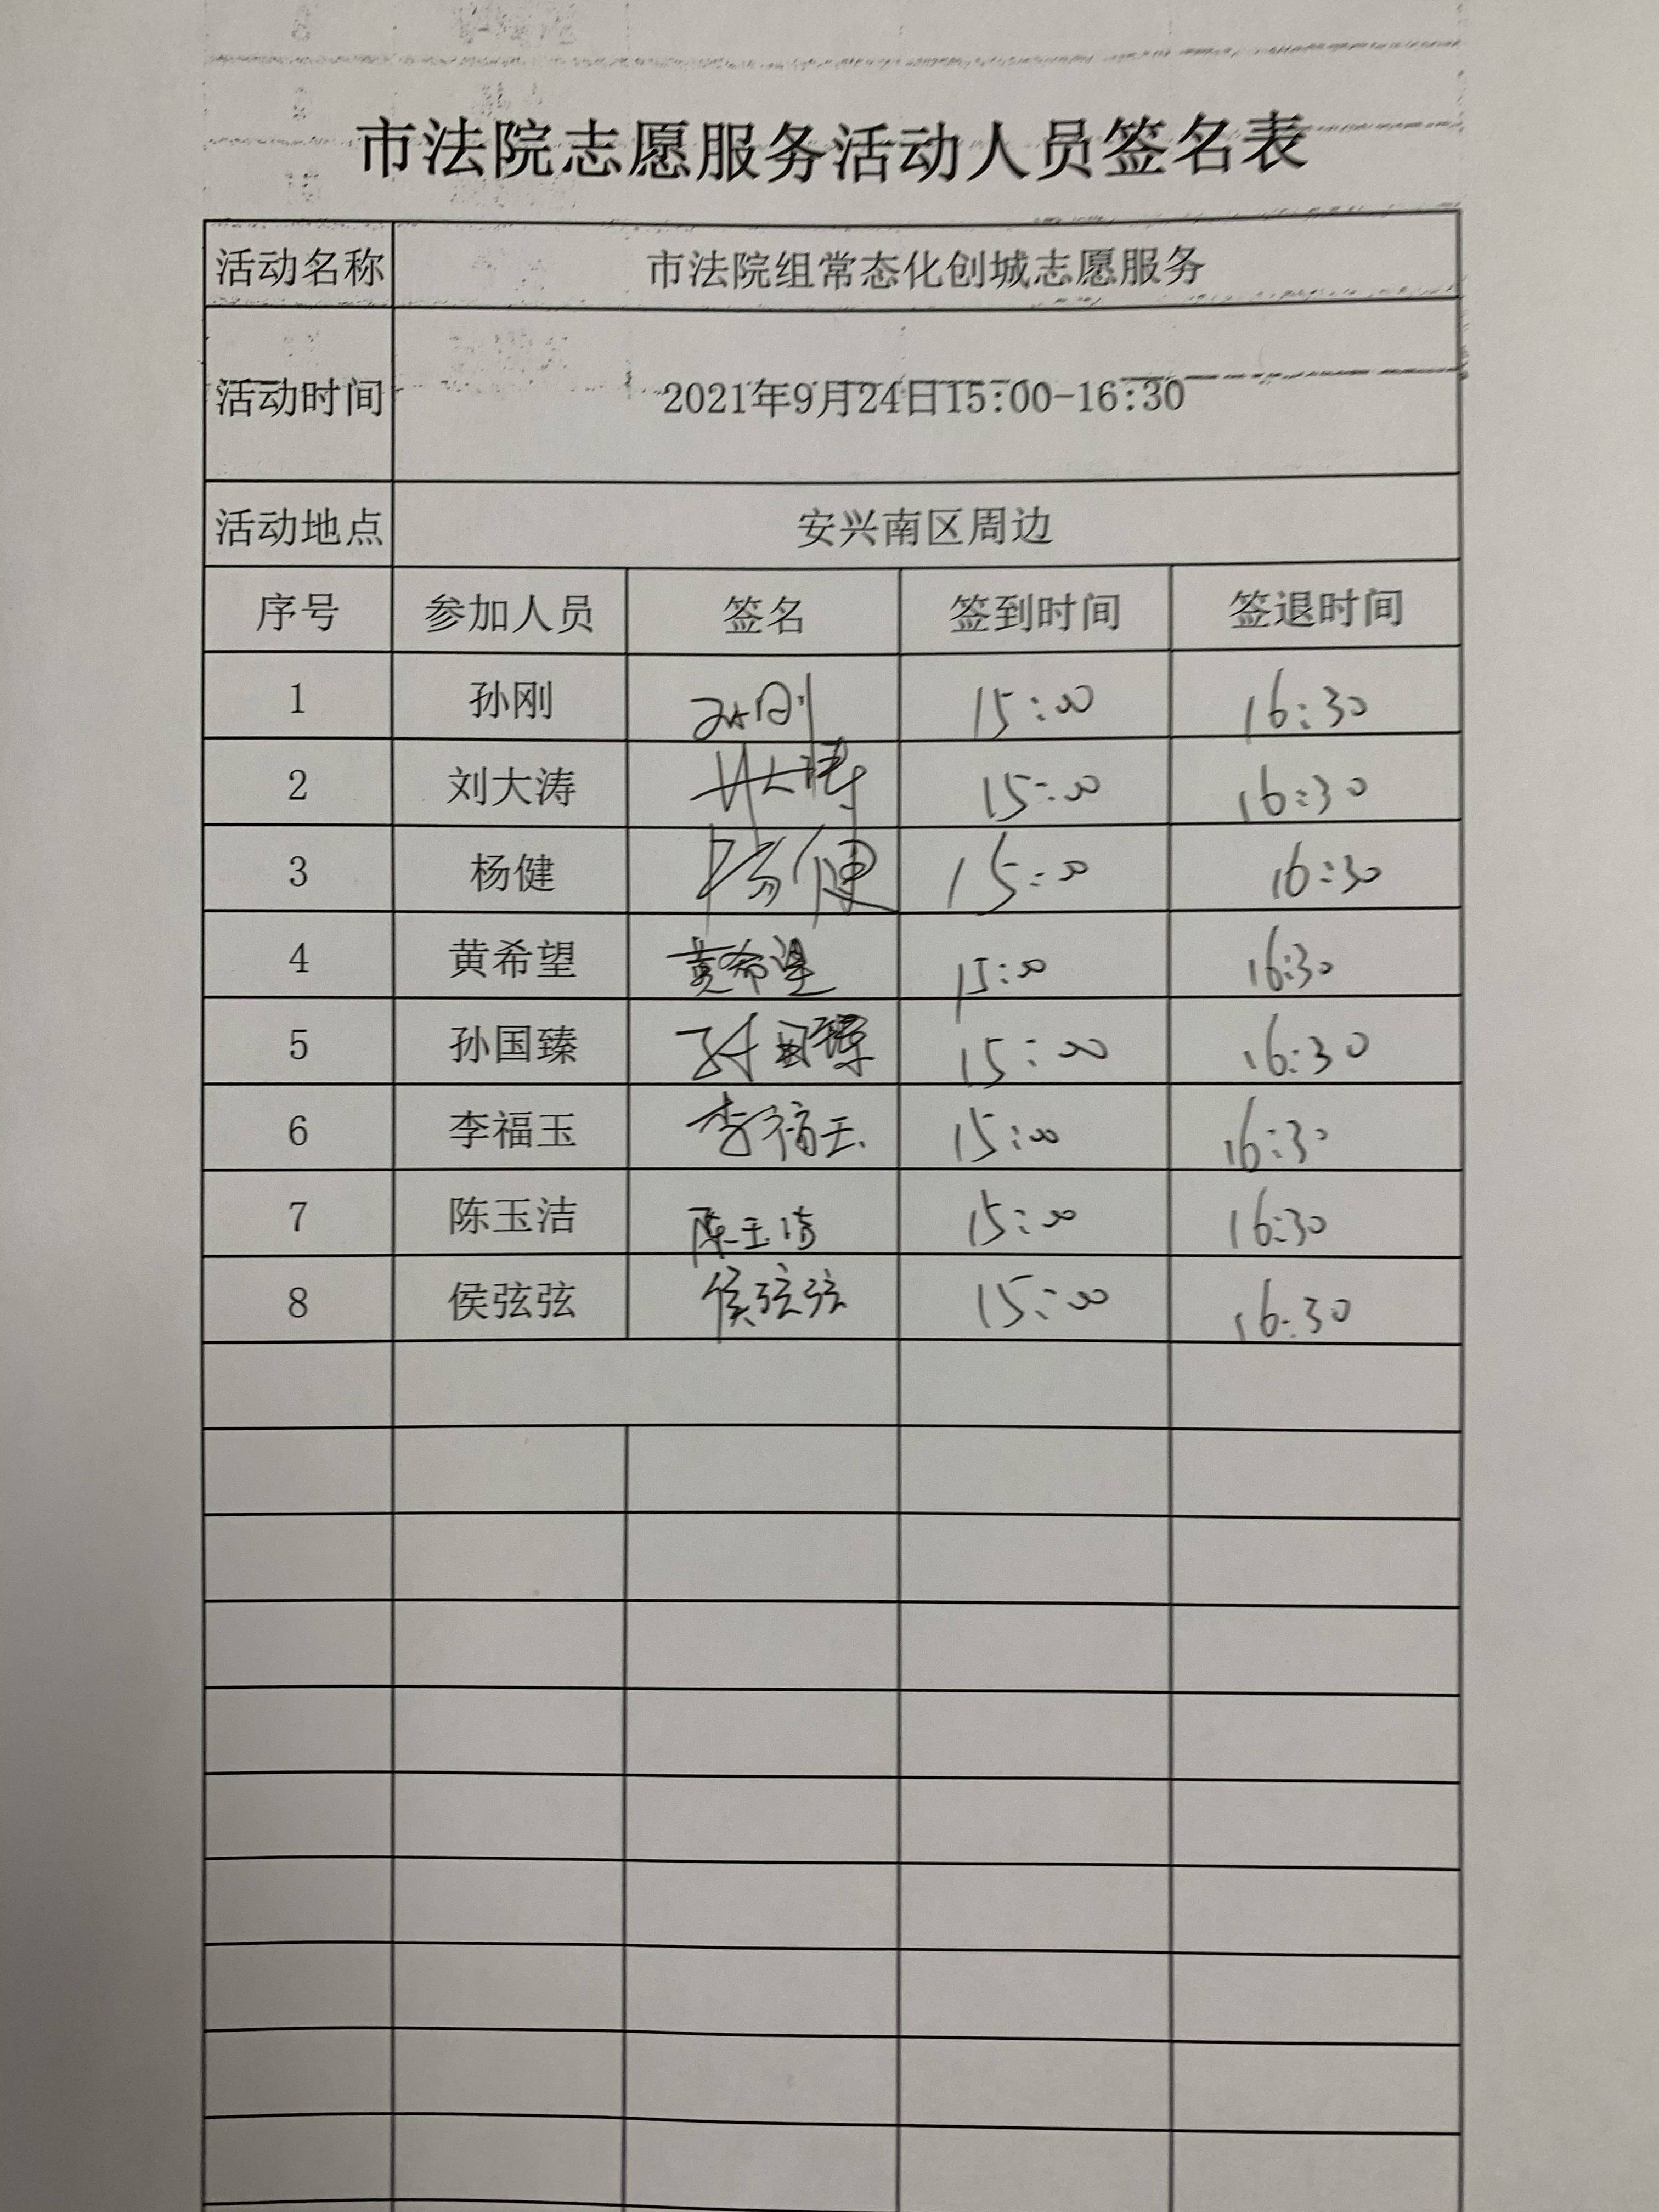 市法院志愿服务活动人员签名表
活动名称 市法院组常态化创城志愿服务
活动时间 2021年9月24日15:00-16:30
活动地点 安兴南区周边
序号 参加人员 签名 签到时间 签退时间
1 孙刚 孙刚 15:00 16:30
2 刘大涛 刘大涛 15:00 16:30
3 杨健 杨健 15:00 16:30
4 黄希望 黄希望 15:00 16:30
5 孙国臻 孙国臻 15:00 16:30
6 李福玉 李福玉 15:00 16:30
7 陈玉洁 陈玉洁 15:00 16:30
8 侯弦弦 侯弦弦 15:00 16:30